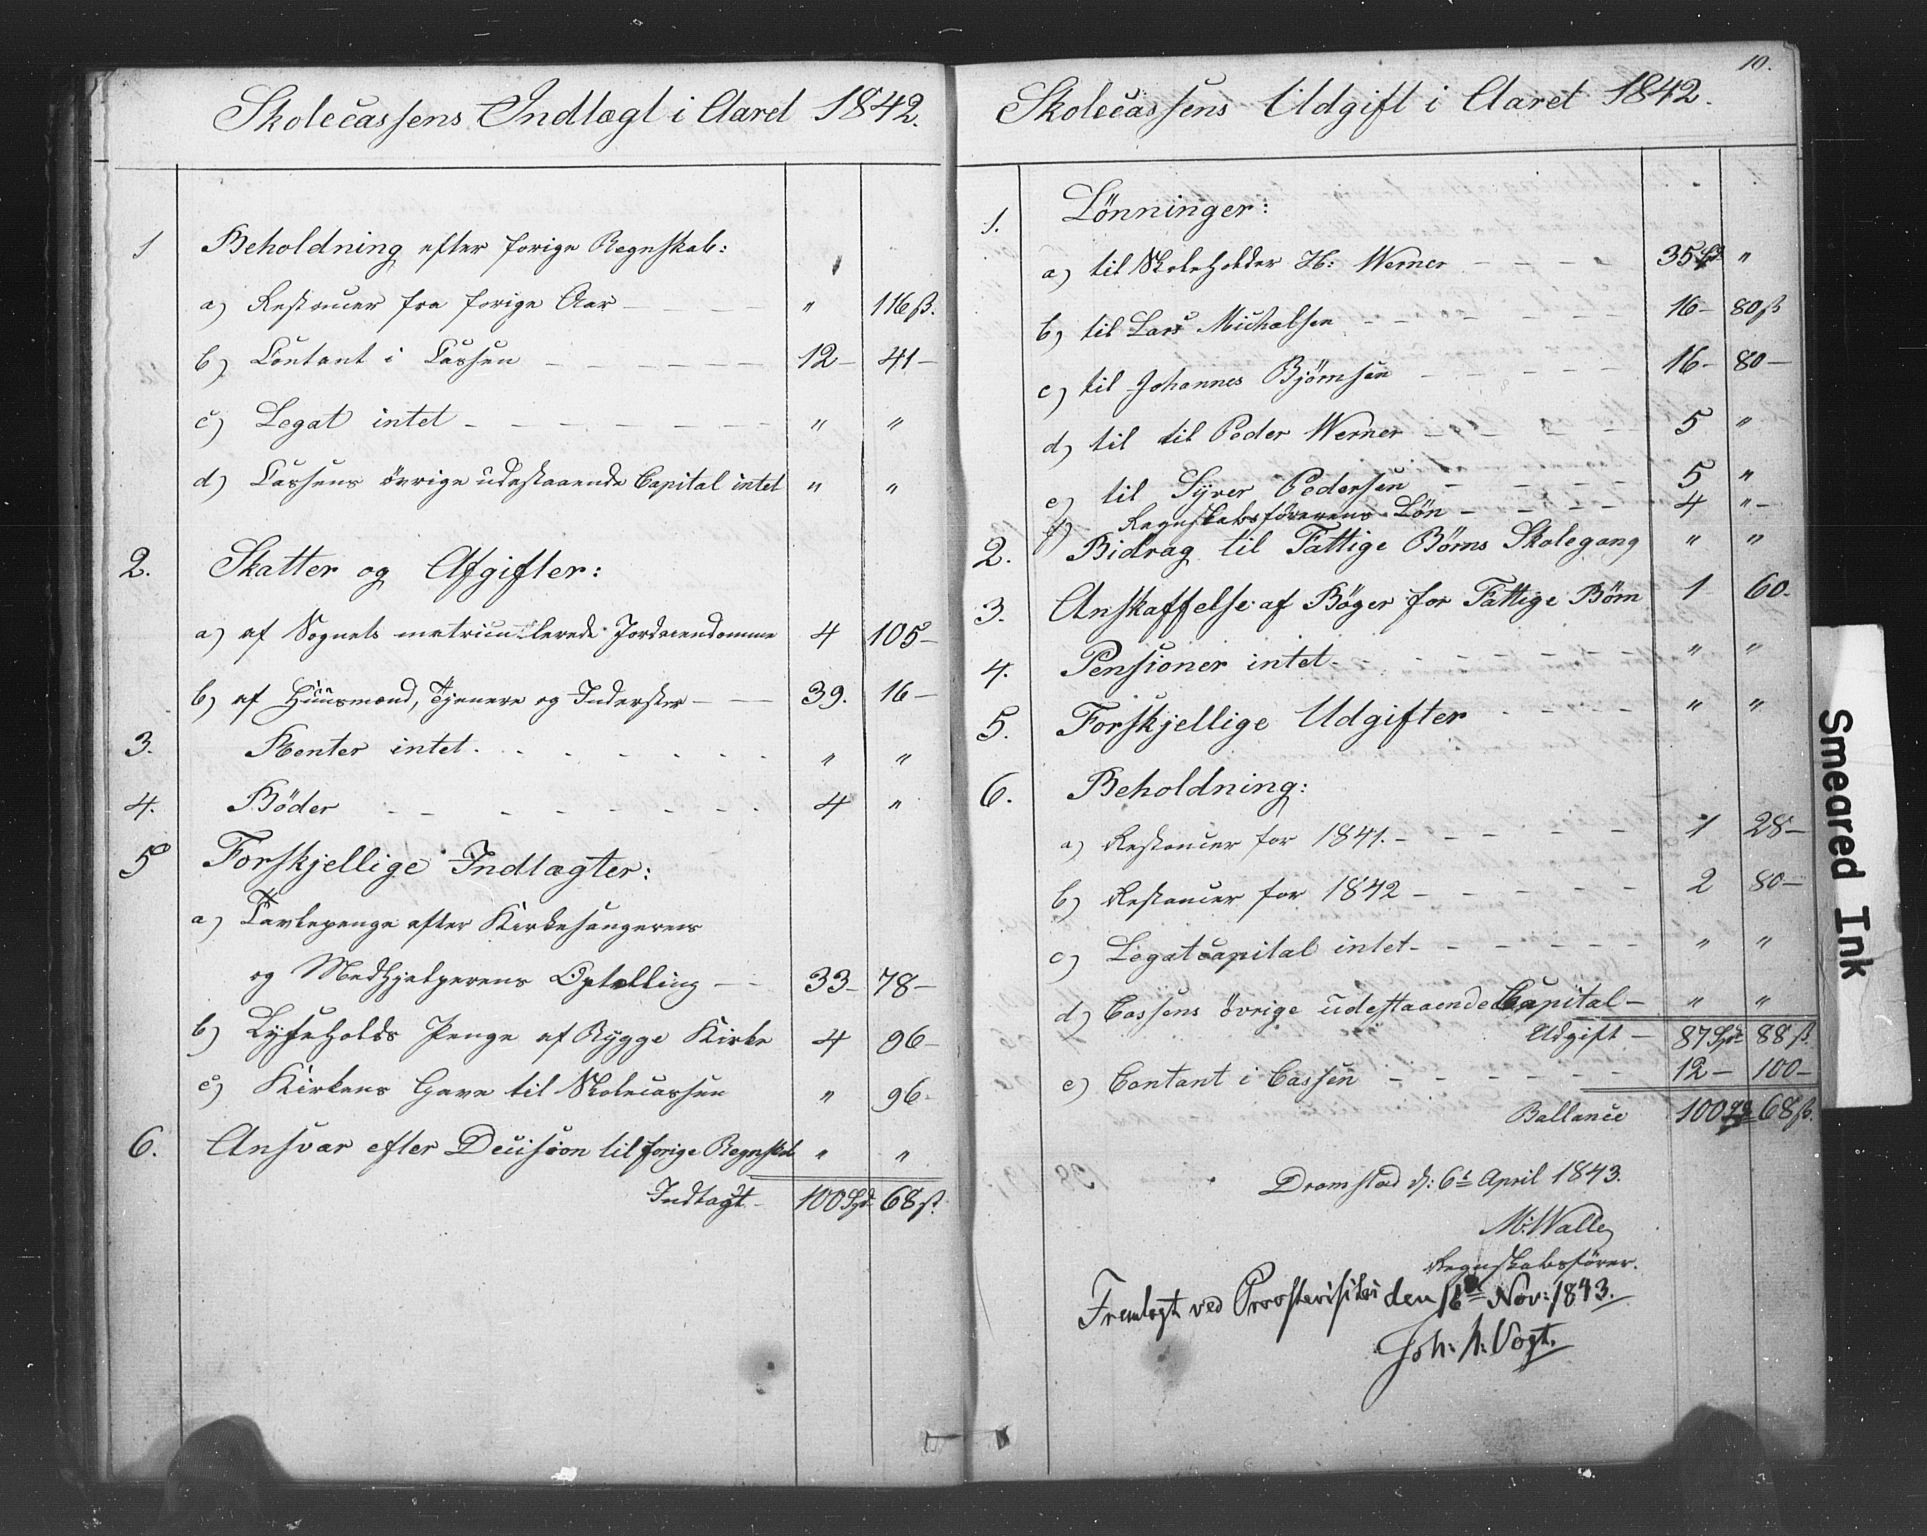 Skolecassens Indtægt i Aaret 1842.
1 Beholdning efter forige Regnskab:
a) Restancer fra forige Aar - - - " 116 ß.
b) Contant i Cassen - - - - - 12 - 41 -
c) Legat intet - - - - - - " "
d) Cassens övrige udestaaende Capital intet " "
2. Skatter og Afgifter:
a) af Sognets matriculerede Jordeiendomme 4 105 -
b) af Huusmænd, Tjenere og Inderster - - 39. 16 -
3. Renter intet. - - - - - " "
4. Böder - - - - - - - 4 "
5 Forskjellige Indtægter:
a) Tavlepenge efter Kirkesangerens
og Medhjelperens Optælling - - 33 - 78 -
b) Lyseholds Penge af Rygge Kirke 4 96 -
c) Kirkens Gave til Skolecassen " 96 -
6. Ansvar efter Decision til forige Regnskab " "
Indtægt - 100 Spd 68 ß.
10.
Skolecassens Udgift i Aaret 1842.
1. Lönninger:
a) til Skoleholder H: Werner - - - - 35 Spd "
b) til Lars Michelsen - - - - - 16 - 80 ß
c) til Johannes Björnsen - - - - - 16 - 80 -
d) til til Peder Werner - - - - - 5 "
e) til Syver Pedersen - - - - - 5 "
f) Regnskabsförerens Lön - - - - - 4 " -
2. Bidrag til Fattige Börns Skolegang " "
3. Anskaffelse af Böger for Fattige Börn 1 60 -
4. Pensioner intet - - - - - - - " "
5. Forskjellige Udgifter - - - - " "
6. Beholdning:
a) Restancer for 1841. - - - - - 1 28 -
b) Restancer for 1842 - - - - - 2 80 -
c) Legatcapital intet - - - - - " "
d) Cassens övrige udestaaende Capital - " "
Udgift - 87 Spd 88 ß.
e) Contant i Cassen - - - - - - 12 - 100 -
Ballance 100 68 ß.
Dramstad d: 6t April 1843.
M: Walle
Regnskabsförer.
Fremlagt ved Proostevisitas den 16 Nov: 1843.
Joh: A: Vogt.
Smeared Ink